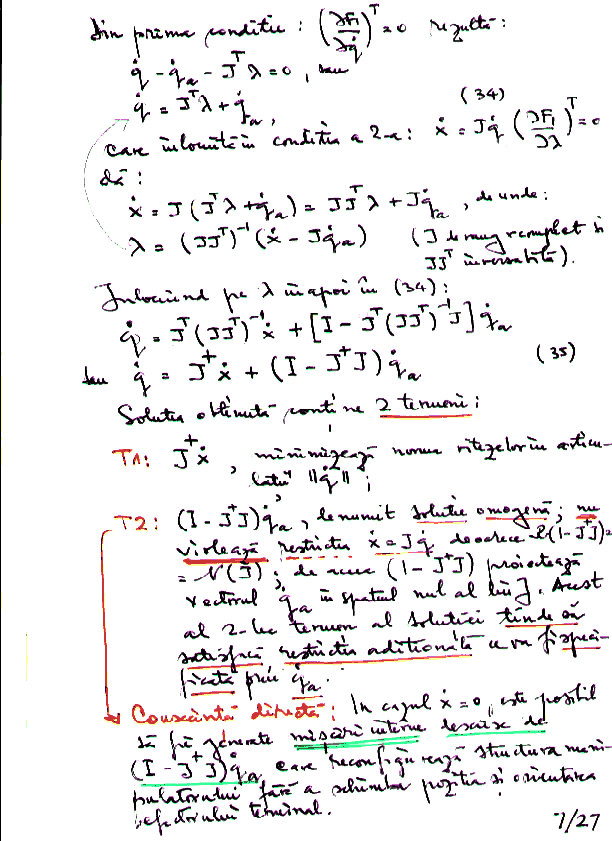 Din prima condiție : (∂F₁/∂q̇)ᵀ = 0 rezultă :
q̇ - q̇ₐ - Jᵀλ = 0 , sau
q̇ = Jᵀλ + q̇ₐ , (34)
care înlocuită în condiția a 2-a : ẋ = Jq̇ (∂F₁/∂λ)ᵀ = 0
dă :
ẋ = J(Jᵀλ + q̇ₐ) = JJᵀλ + Jq̇ₐ , de unde :
λ = (JJᵀ)⁻¹(ẋ - Jq̇ₐ) (J de rang complet și
JJᵀ inversabilă).
Înlocuind pe λ înapoi în (34) :
q̇ = Jᵀ(JJᵀ)⁻¹ẋ + [I - Jᵀ(JJᵀ)⁻¹J]q̇ₐ
sau q̇ = J⁺ẋ + (I - J⁺J)q̇ₐ (35)
Soluția obținută conține 2 termeni :
T1: J⁺ẋ , minimizează norma vitezelor în articu-
lații ‖q̇‖ ;
T2: (I - J⁺J)q̇ₐ , denumit soluție omogenă ; nu
violează restricția ẋ = Jq̇ deoarece R(I - J⁺J) =
= N(J) ; de aceea (I - J⁺J) proiectează
vectorul q̇ₐ în spațiul nul al lui J. Acest
al 2-lea termen al soluției tinde să
satisfacă restricția adițională ce va fi speci-
ficată prin q̇ₐ.
Consecință directă : În cazul ẋ = 0, este posibil
să fie generate mișcări interne descrise de
(I - J⁺J)q̇ₐ care reconfigurează structura mani-
pulatorului fără a schimba poziția și orientarea
efectorului terminal.
7/27